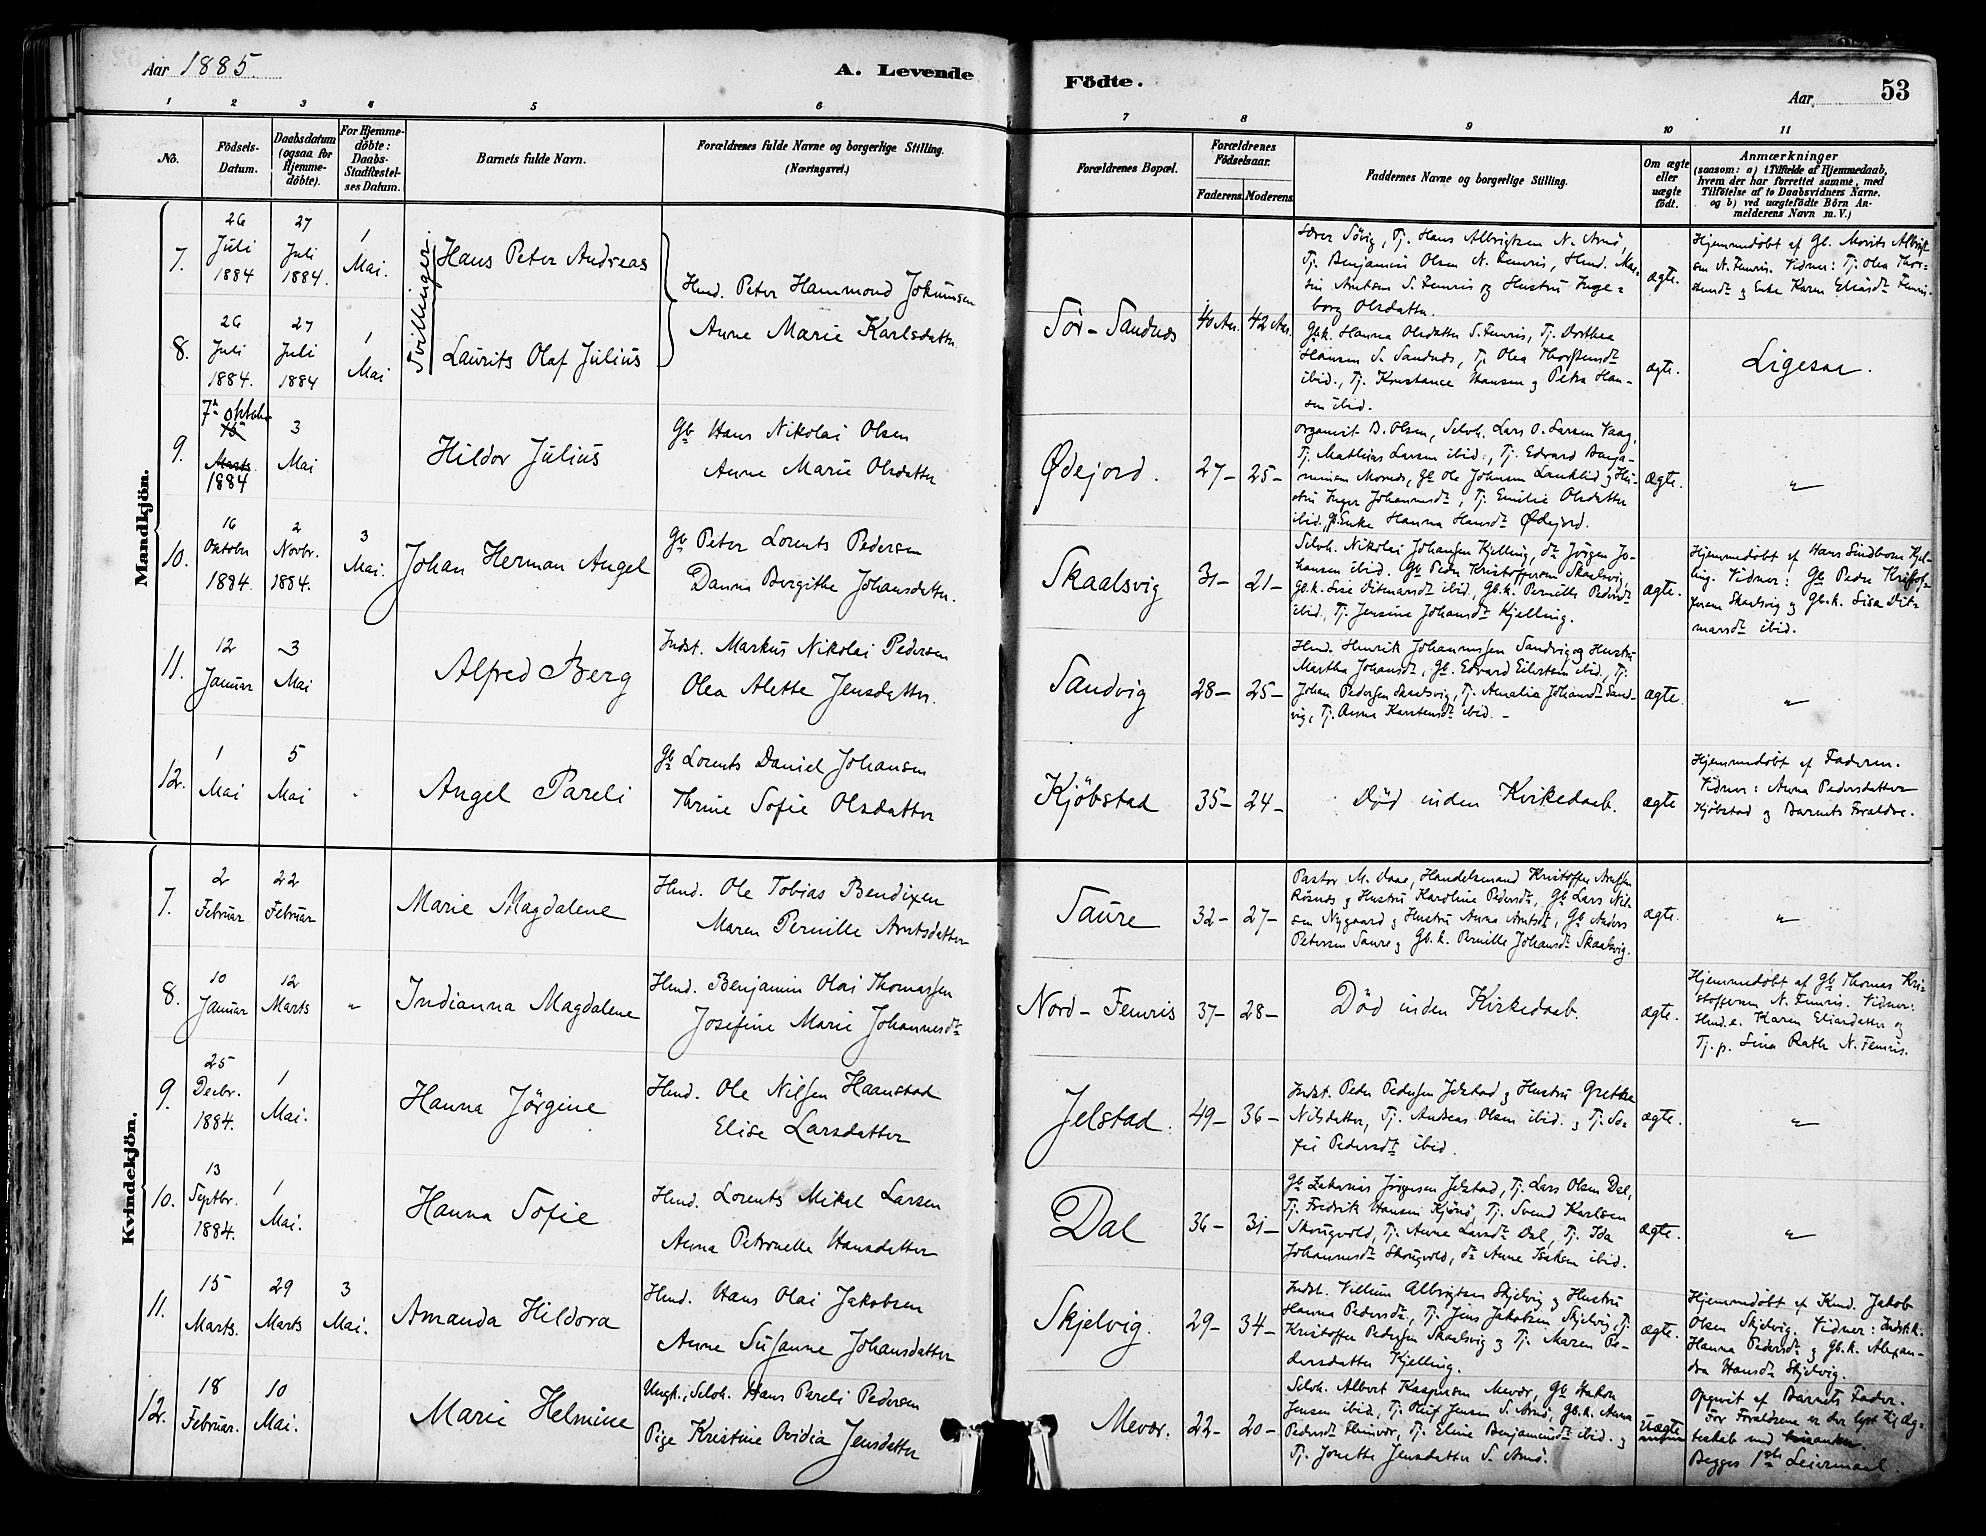 Aar 1885.
A. Levende Födte.
Aar
53
1 2 3 4 5 6 7 8 9 10 11
No.
Födsels-Datum.
Daabsdatum (ogsaa for Hjemme-döbte).
For Hjemme-döbte: Daabs-Stadfæstel-ses Datum.
Barnets fulde Navn.
Forældrenes fulde Navne og borgerlige Stilling. (Næringsvei.)
Forældrenes Bopæl.
Forældrenes Födselsaar.
Faderens. Moderens.
Faddernes Navne og borgerlige Stilling.
Om ægte eller uægte födt.
Anmærkninger
(saasom: a) i Tilfælde af Hjemmedaab,
hvem der har forrettet samme, med
Tilföielse af to Daabsvidners Navne.
og b) ved uægtefödte Börn An-
melderens Navn m. V.)
Mandkjön.
7.
26 Juli 1884
27 Juli 1884.
1 Mai.
Tvillinger.
Hans Peter Andreas
Hmd. Peter Hammond Jokumsen
Anne Marie Karlsdatter
Sör-Sandnæs
40 Aar. 42 Aar.
Lærer Sövig, Tj. Hans Albrigtsen N. Arnö,
Tj. Benjamin Olsen N. Femris, Hmd.
Arntsen S. Femris og Hustru Inge-
borg Olsdatter.
ægte.
Hjemmedöbt af Gb. Morits Albrigt-
sen N. Femris. Vidner: Tj. Olea Thor-
stensdr og Enke Karen Eliasdr Femris.
8.
26 Juli 1884.
27 Juli 1884
1 Mai
Laurits Olaf Julius
Gbk. Hanna Olsdatter S. Femris, Tj. Dorthea
Hansen S. Sandnæs, Tj. Olea Thorstensdr
ibid., Tj. Konstance Hansen og Petra Han-
sen ibid.
ægte.
Ligesaa.
9.
7de oktober
Marts
1884
3 Mai
Hildor Julius
Gb Hans Nikolai Olsen
Anne Marie Olsdatter
Ødejord.
27- 25-
Organist B. Olsen, Selvh. Lars O. Larsen Vaag,
Tj. Mathias Larsen ibid., Tj. Edvard Benja-
minsen, Gb Ole Johnsen og Hu-
stru Inger Johannesdr, Tj. Emilie Olsdatter
ibid. og Enke Hanna Hansdr Ødejord.
ægte.
"
10.
16 Oktober 1884
2 Novbr. 1884.
3 Mai.
Johan Herman Angel
Gb Peter Lorents Pedersen
Bergithe Johansdatter.
Skaalsvig
31- 21-
Selvh. Nikolai Johansen Kjelling, do Jörgen Jo-
hansen ibid. Gb Peder Kristoffersen Skaalsvig,
Gb.k. Lise Ditmarsdr ibid, Gb.k. Pernille Pedersdr
ibid., Tj. Jensine Johansdr Kjelling.
ægte.
Hjemmedöbt af Hans Lindbom Kjel-
ling. Vidner: Gb Peder Kristof-
fersen Skaalsvig og Gb.k. Lisa Dit-
marsdr ibid.
11.
12 Januar
3 Mai
Alfred Berg
Indst. Markus Nikolai Pedersen
Olea Alette Jensdatter.
Sandvig
28- 25-
Hmd. Henrik Johannessen Sandvig og Hustru
Martha Johansdr, Gb. Edvard ibid., Tj.
Johan Pedersen Skaalsvig, Tj. Amalia Johansdr Sand-
vig, Tj. Anna Karstensdr ibid. -
ægte.
"
12.
1 Mai
5 Mai
Angel Pareli
Gb Lorents Daniel Johansen
Thrine Sofie Olsdatter
Kjöbstad
35- 24-
Död inden Kirkedaab.
ægte
Hjemmedöbt af Faderen.
Vidner: Anna Pedersdatter
Kjöbstad og Barnets Forældre.
Kvindekjön.
7.
2 Februar
22 Februar
Marie Magdalene
Hmd. Ole Tobias Bendixen
Maren Pernille Arntsdatter
Saure
32- 27-
Pastor M. Aas, Handelsmand Kristoffer Arntsen
Rösnæs og Hustru Karoline Pedersdr, Gb Lars Nil-
sen Nygaard og Hustru Anna Arntsdr, Gb Anders
Petersen Saure og Gb.k. Pernille Johansdr Skaalsvig.
ægte.
"
8.
10 Januar
12 Marts
"
Indianna Magdalene
Hmd. Benjamin Olai Thomassen
Josefine Marie Johannesdr
Nord-Femris
37- 28-
Död inden Kirkedaab.
ægte.
Hjemmedöbt af Gb Thomas Kri-
stoffersen N. Femris. Vidner:
Hmd.e. Karen Eliasdatter og
Tj.p. Lina Rath N. Femris.
9.
25 Decbr. 1884.
1 Mai.
Hanna Jörgine
Hmd. Ole Nilssen Haanstad
Elise Larsdatter
Jelstad.
49- 36-
Indst. Peder Pedersen Jelstad og Hustru Grethe
Nilsdatter, Tj. Andreas Olsen ibid. og Tj. So-
fie Pedersdr ibid.
ægte.
"
10.
13 Septbr. 1884.
1 Mai.
Hanna Sofie
Hmd. Lorents Mikal Larsen
Anna Petronelle Hansdatter
Dal
36- 31-
Gb Zakarias Jörgensen Jelstad, Tj. Lars Olsen Dal,
Tj. Fredrik Hansen Kjönö, Tj. Svend Karlsen
Skougvold, Tj. Anne Larsdr Dal, Tj. Ida
Johannesdr Skougvold, do Anne Isaksen ibid.
ægte.
"
11.
15 Marts.
29 Marts
3 Mai.
Amanda Hildora
Hmd. Hans Olai Jakobsen
Anne Susanne Johansdatter
Skjelvig.
29- 34-
Indst. Villum Albrigtsen Skjelvig og Hustru
Hanna Pedersdr, Tj. Jens Jakobsen Skjelvig, Tj.
Kristoffer Pedersen Skaalsvig og Tj. Maren Pe-
dersdatter Kjelling.
ægte.
Hjemmedöbt af Hmd. Jakob
Olsen Skjelvig. Vidner: Indst.k.
Hanna Pedersdr og Gb.k. Alexan-
dra Hansdr Skjelvig.
12.
18 Februar.
10 Mai.
Marie Helmine
Ungk., Selvh. Hans Pareli Pedersen
Pige Kristine Ovidia Jensdatter
Mevær.
22- 20-
Selvh. Albert Kaspersen Mevær, Gb Hakon
Jensen ibid, Tj. Oluf Jensen S. Arnö, Gb.k. Anna
Pedersdr, Tj. Eline Benjaminsdr ibid. og
Tj. Jonette Jensdatter S. Arnö.
Uægte
Opgivet af Barnets Fader.
For Forældrene er der lyst til Æg-
teskab med hinanden.
Begges 1ste Leiermaal.